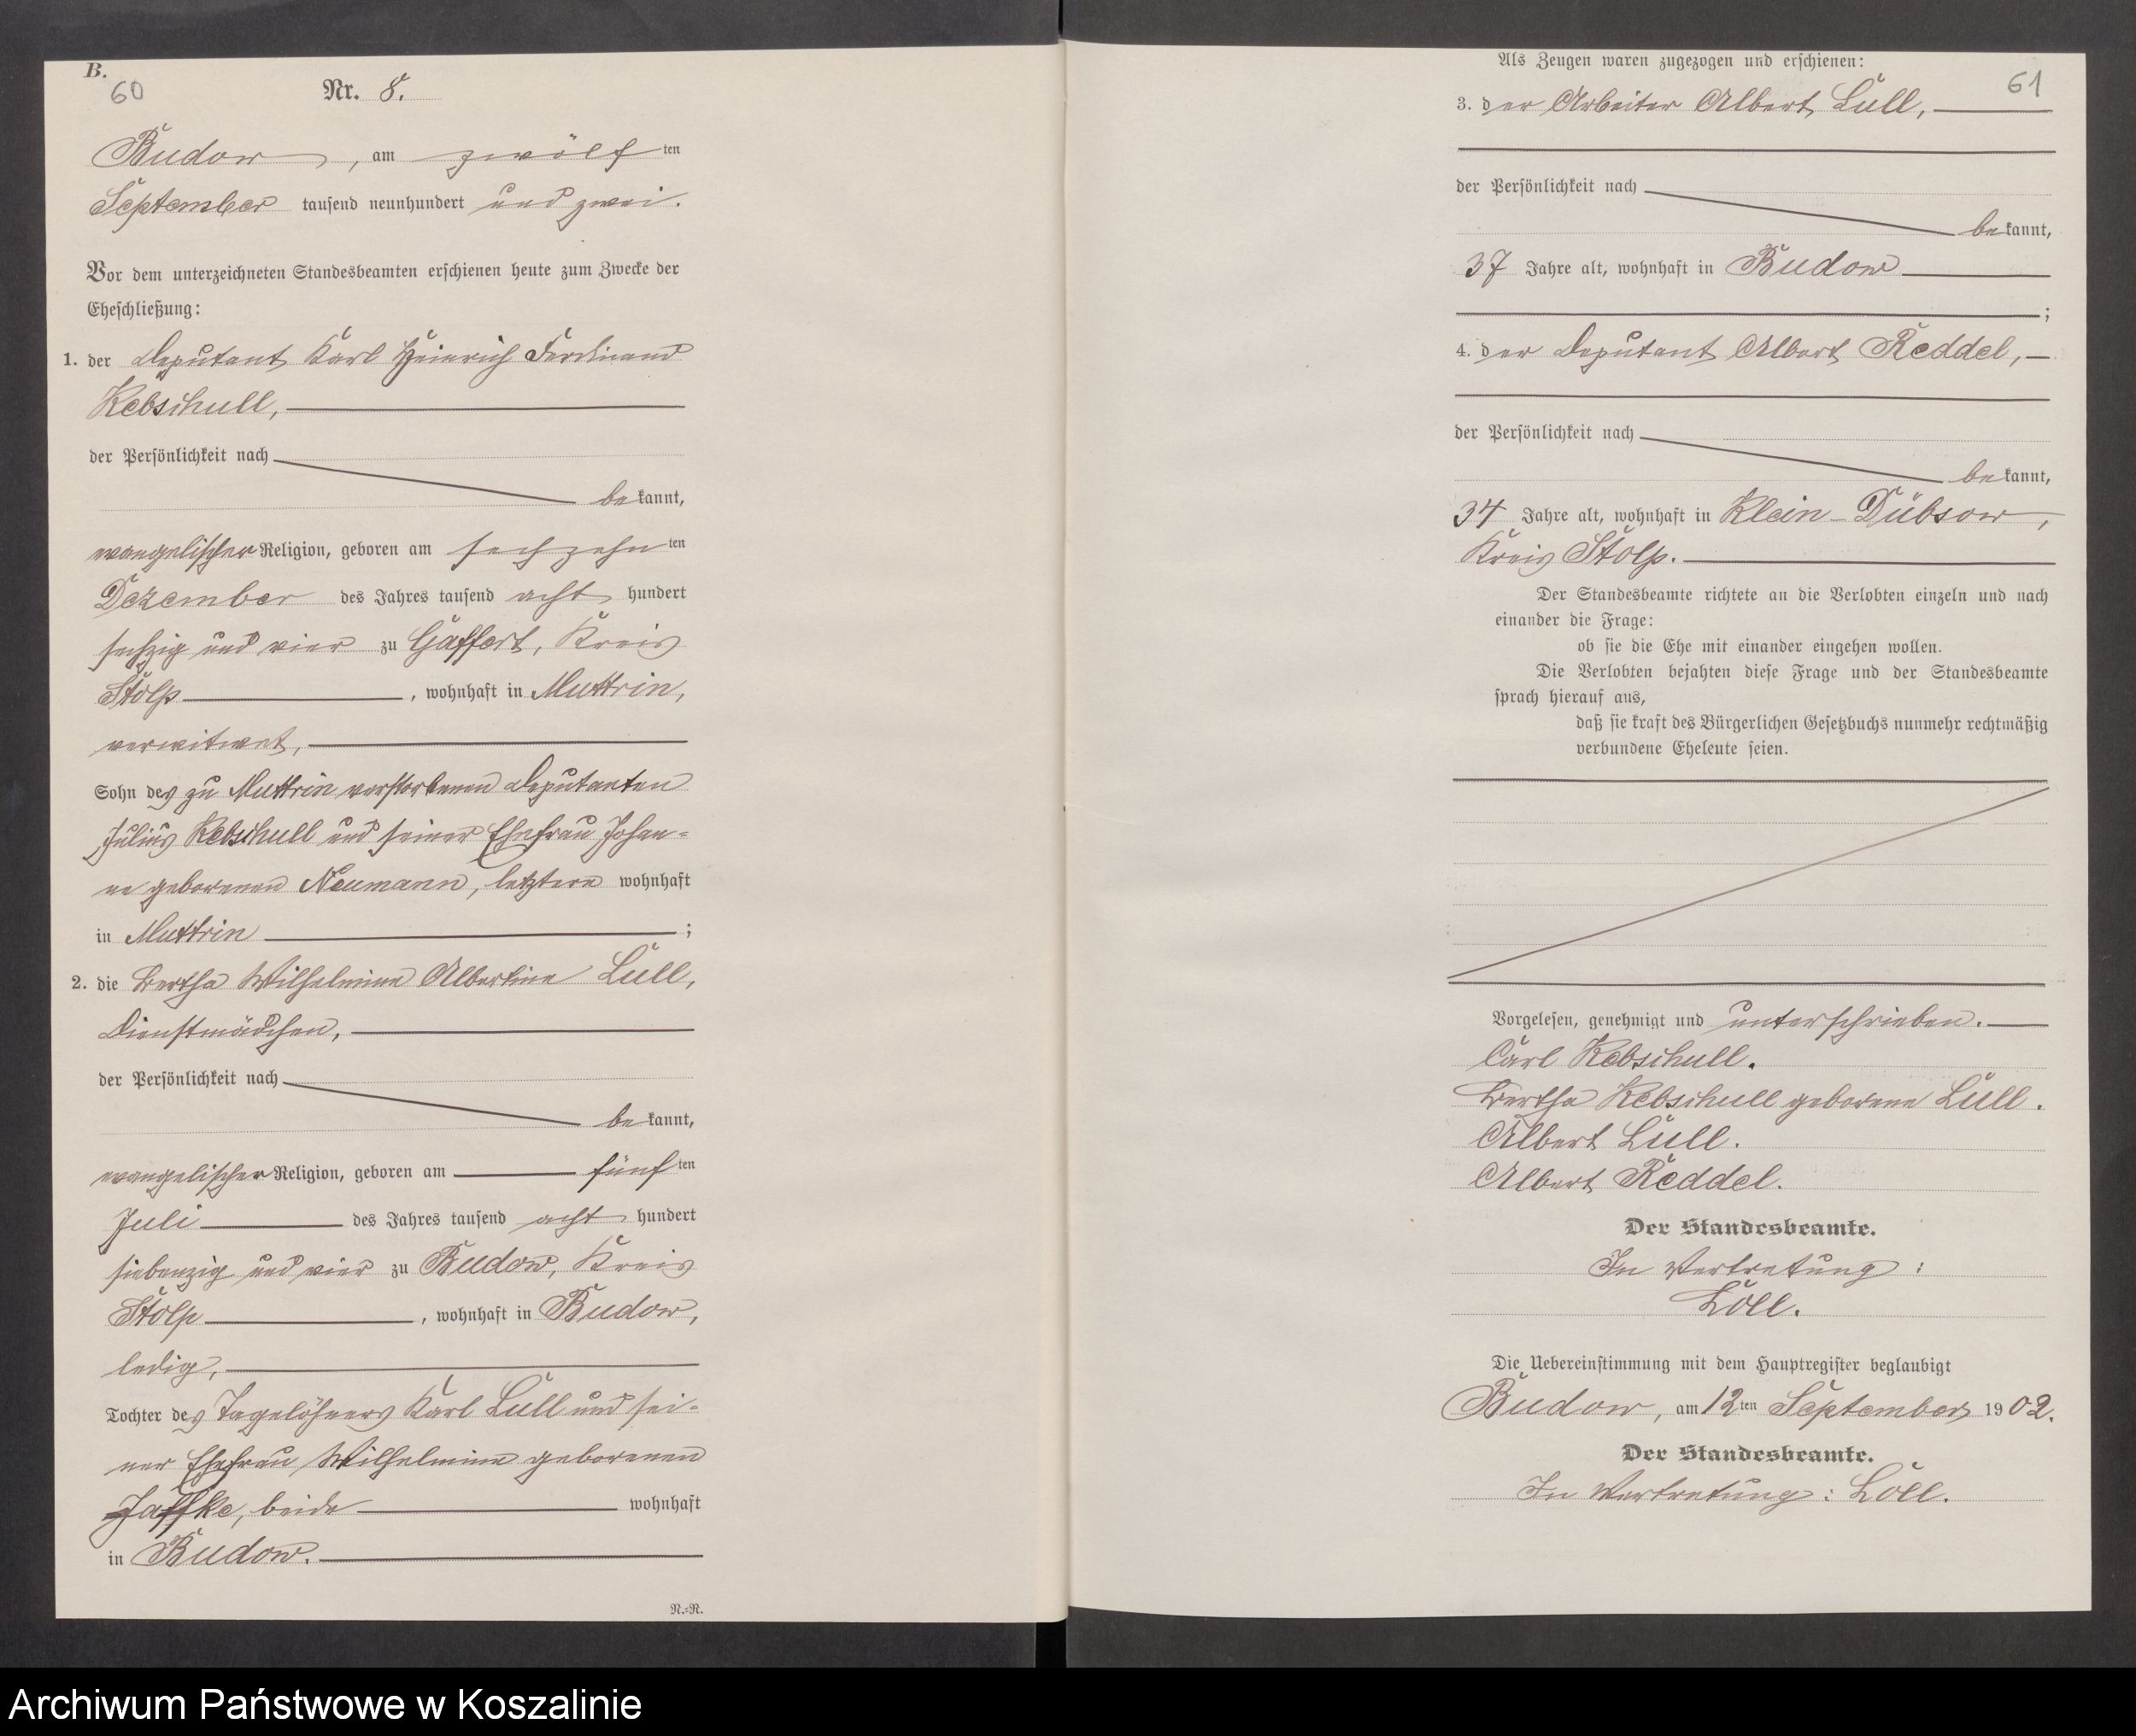 B.
60
Nr. 8.
Budow, am zwölften
September tausend neunhundert und zwei.
Vor dem unterzeichneten Standesbeamten erschienen heute zum Zwecke der
Eheschließung:
1. der Deputant Karl Heinrich Ferdinand
Kebschull,
der Persönlichkeit nach
bekannt,
evangelischer Religion, geboren am sechzehnten
Dezember des Jahres tausend acht hundert
sechzig und vier zu Gaffert, Kreis
Stolp, wohnhaft in Muttrin,
verwitwet,
Sohn des zu Muttrin verstorbenen Deputanten
Julius Kebschull und seiner Ehefrau Johan=
ne geborenen Neumann, letztere wohnhaft
in Muttrin;
2. die Bertha Wilhelmine Albertine Lüll,
Dienstmädchen,
der Persönlichkeit nach
bekannt,
evangelischer Religion, geboren am fünften
Juli des Jahres tausend acht hundert
siebenzig und vier zu Budow, Kreis
Stolp, wohnhaft in Budow,
ledig,
Tochter des Tagelöhners Karl Lüll und sei=
ner Ehefrau Wilhelmine geborenen
Jaffke, beide wohnhaft
in Budow.
N.=N.
Als Zeugen waren zugezogen und erschienen:
61
3. der Arbeiter Albert Lüll,
der Persönlichkeit nach
bekannt,
37 Jahre alt, wohnhaft in Budow
;
4. der Deputant Albert Reddel,
der Persönlichkeit nach
bekannt,
34 Jahre alt, wohnhaft in Klein-Dübsow,
Kreis Stolp.
Der Standesbeamte richtete an die Verlobten einzeln und nach
einander die Frage:
ob sie die Ehe mit einander eingehen wollen.
Die Verlobten bejahten diese Frage und der Standesbeamte
sprach hierauf aus,
daß sie kraft des Bürgerlichen Gesetzbuchs nunmehr rechtmäßig
verbundene Eheleute seien.
Vorgelesen, genehmigt und unterschrieben.
Carl Kebschull.
Bertha Kebschull geborene Lüll.
Albert Lüll.
Albert Reddel.
Der Standesbeamte.
In Vertretung:
Löll.
Die Uebereinstimmung mit dem Hauptregister beglaubigt
Budow, am 12ten September 1902.
Der Standesbeamte.
In Vertretung: Löll.
Archiwum Państwowe w Koszalinie